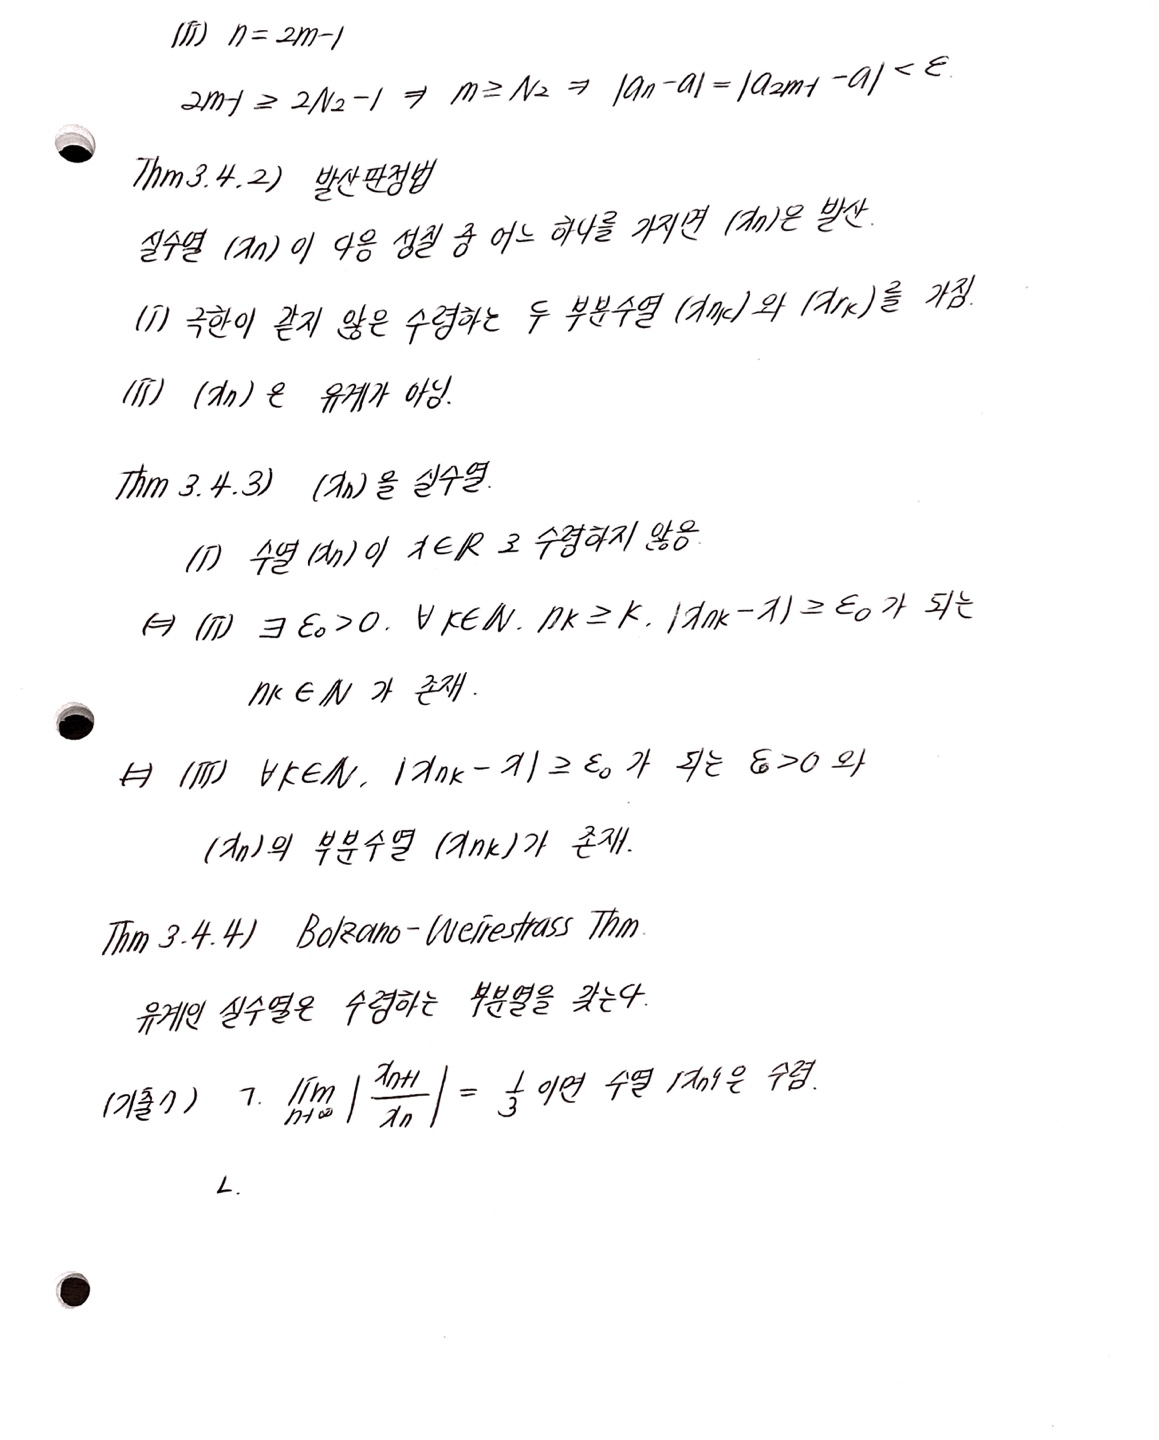 (ii) n = 2m-1
2m-1 ≥ 2N₂-1 ⇒ m ≥ N₂ ⇒ |aₙ-a| = |a₂ₘ₋₁ -a| < ε.
Thm 3.4.2) 발산판정법
실수열 (xₙ)이 다음 성질 중 어느 하나를 가지면 (xₙ)은 발산.
(i) 극한이 같지 않은 수렴하는 두 부분수열 (xₙₖ)와 (xᵣₖ)를 가짐.
(ii) (xₙ)은 유계가 아님.
Thm 3.4.3) (xₙ)을 실수열.
(i) 수열 (xₙ)이 x∈ℝ로 수렴하지 않음.
⇔ (ii) ∃ ε₀>0. ∀k∈ℕ. nₖ ≥ k. |xₙₖ - x| ≥ ε₀가 되는
nₖ ∈ ℕ 가 존재.
⇔ (iii) ∀k∈ℕ, |xₙₖ - x| ≥ ε₀가 되는 ε₀>0 와
(xₙ)의 부분수열 (xₙₖ)가 존재.
Thm 3.4.4) Bolzano-Weirestrass Thm.
유계인 실수열은 수렴하는 부분열을 갖는다.
(기출) ㄱ. lim n→∞ |xₙ₊₁/xₙ| = 1/3 이면 수열 {xₙ}은 수렴.
ㄴ.